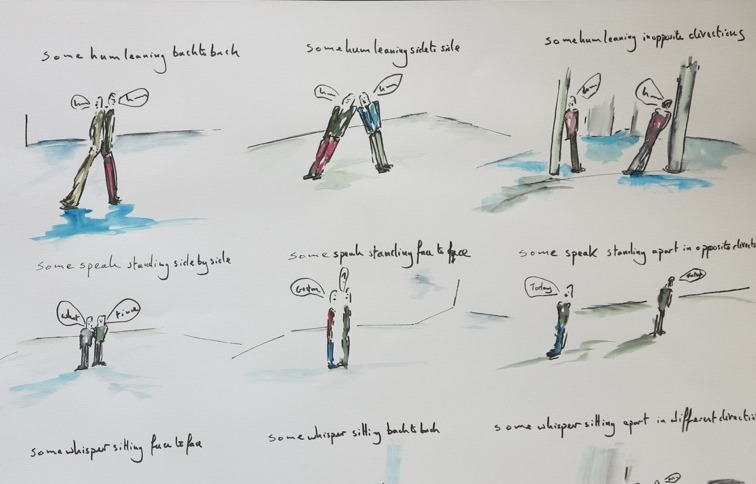 some hum leaning back to back
some hum leaning side to side
some hum leaning in opposite directions
hm
hm
hm
hm
hm
hm
some speak standing side by side
some speak standing face to face
some speak standing apart in opposite directi
what
time
Today
some whisper sitting face to face
some whisper sitting back to back
some whisper sitting apart in different directi